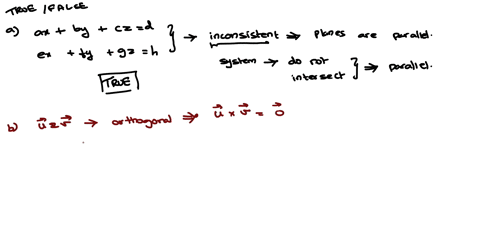 TRUE / FALSE
a) ax + by + cz = d
ex + fy + gz = h
} → inconsistent ⇒ planes are parallel.
system → do not intersect } ⇒ parallel.
TRUE
b) u⃗ = v⃗ → orthogonal ⇒ u⃗ × v⃗ = 0⃗